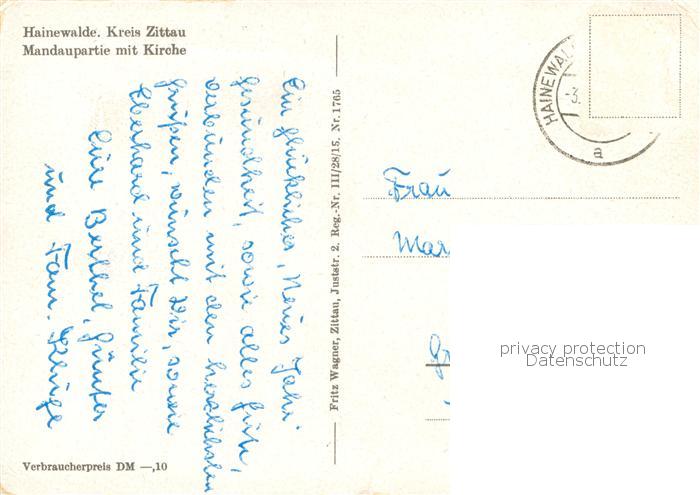 Hainewalde. Kreis Zittau
Mandaupartie mit Kirche
Ein glückliches, Neues Jahr.
Gesundheit, sowie alles Gute,
verbunden mit den herzlichsten
Grüßen, wünscht Dir, sowie
Eberhard und Familie
Eure Berthel, Günter
und Fam. Kluge
Verbraucherpreis DM —,10
Fritz Wagner, Zittau, Juststr. 2. Reg.-Nr. III/28/15. Nr. 1765
HAINEWAL
3.
a
Frau
Mar
privacy protection
Datenschutz